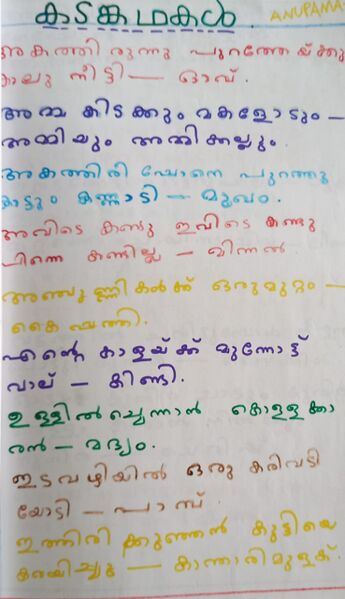 കടങ്കഥകൾ
ANUPAMA
അകത്തിരുന്നു പുറത്തേയ്ക്കു
കാലു നീട്ടി — ഓവ്.
അമ്മ കിടക്കും മകളോടും —
അമ്മിയും അമ്മിക്കല്ലും.
അകത്തിരി പോനെ പുറത്തു
കാട്ടും കണ്ണാടി — മുഖം.
അവിടെ കണ്ടു ഇവിടെ കണ്ടു
പിന്നെ കണ്ടില്ല — മിന്നൽ
അഞ്ചുണ്ണികൾക്ക് ഒരുമുറ്റം —
കൈപ്പത്തി.
എന്റെ കാളയ്ക്ക് മുന്നോട്ട്
വാല് — കിണ്ടി.
ഉള്ളിൽച്ചെന്നാൻ കൊള്ളക്കാ
രൻ — മദ്യം.
ഇടവഴിയിൽ ഒരു കരിവടി
യോടി — പാമ്പ്
ഇത്തിരിക്കുഞ്ഞൻ കുട്ടിയെ
കരയിച്ചു — കാന്താരിമുളക്.